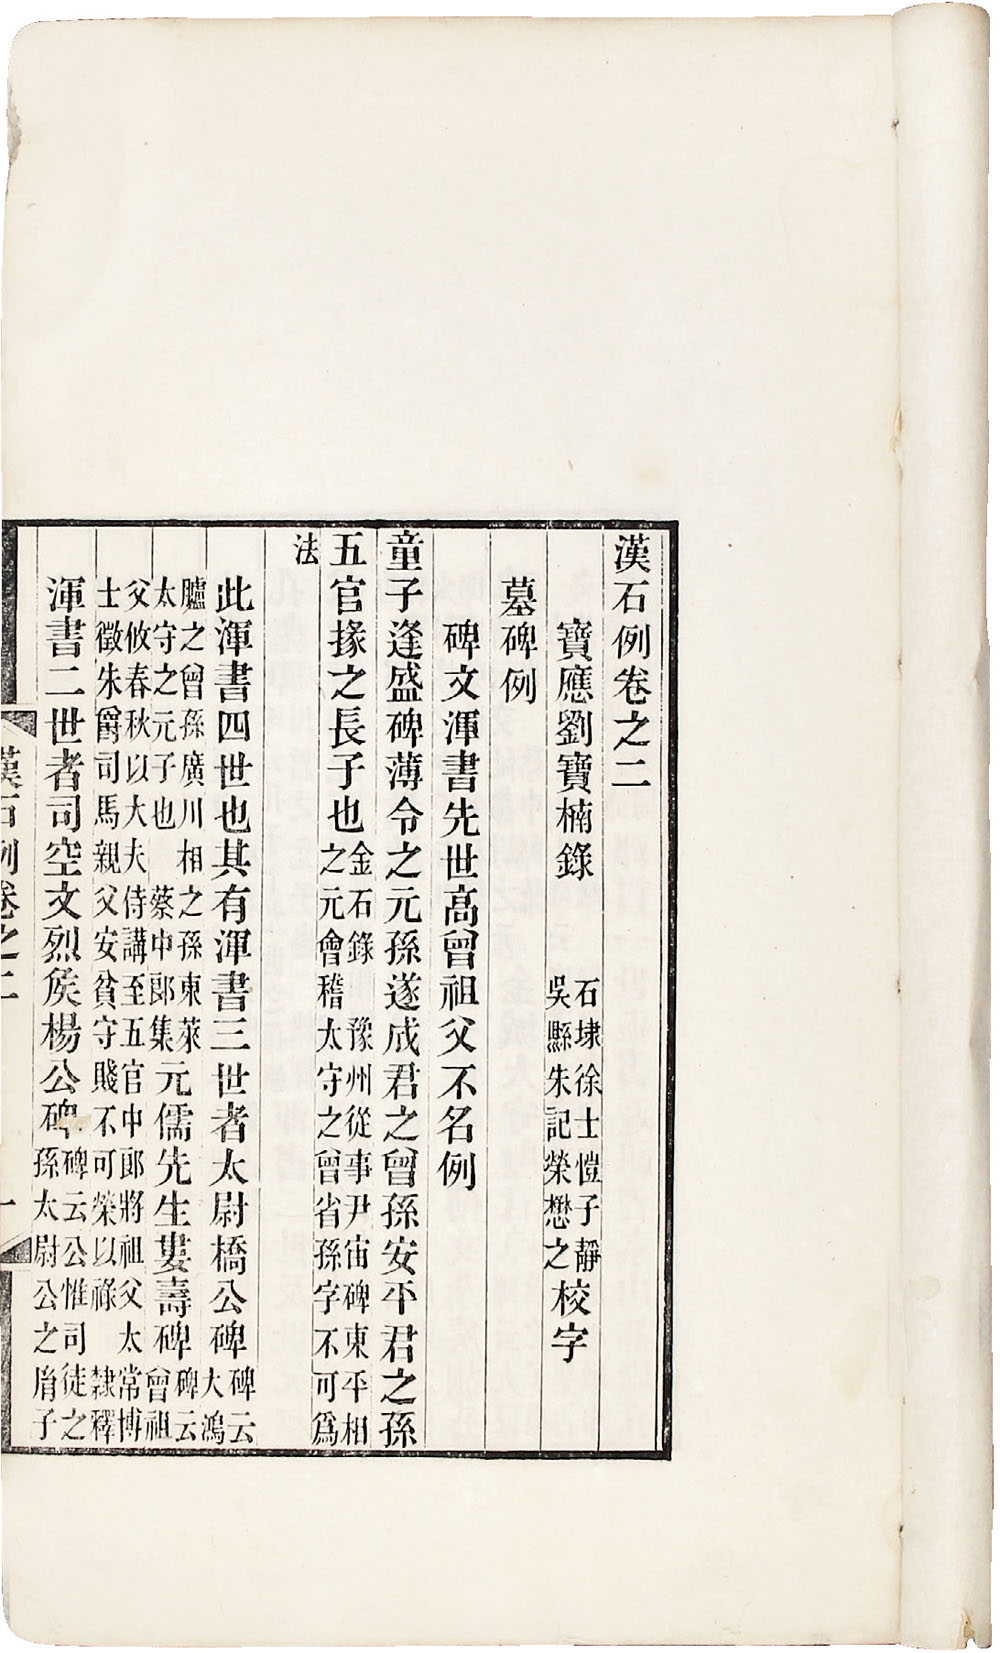 漢石例卷之二
寶應劉寶楠錄
石埭徐士愷子靜
吳縣朱記榮懋之
校字
墓碑例
碑文渾書先世高曾祖父不名例
童子逢盛碑薄令之元孫遂成君之曾孫安平君之孫
五官掾之長子也
金石錄　豫州從事尹宙碑東平相
之元會稽太守之曾省孫字不可爲
法
此渾書四世也其有渾書三世者太尉橋公碑
碑云
大鴻
臚之曾孫廣川相之孫東萊
太守之元子也　蔡中郎集
元儒先生婁壽碑
碑云
曾祖
父攸春秋以大夫侍講至五官中郎將祖父太常博
士徵朱爵司馬親父安貧守賤不可榮以祿　隸釋
渾書二世者司空文烈矦楊公碑
碑云公惟司徒之
孫太尉公之胤子
漢石例卷之二
一